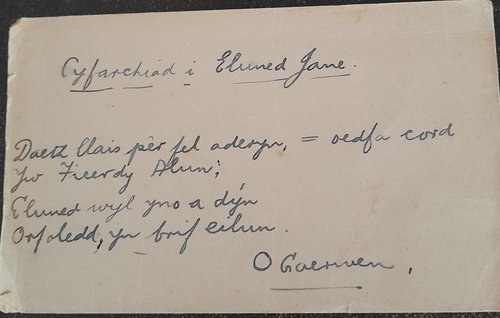 Cyfarchiad i Eluned Jane.
Daeth llais pêr fel aderyn, = oedfa cord
Yw Ficerdy Alun;
Eluned wyl yno a dýn
Orfoledd, yn brif eilun.
O Gaerwen,